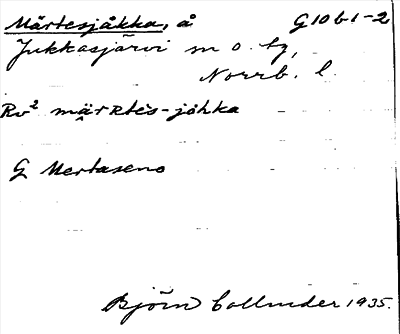 Märtesjåkka, å G10b1-2
Jukkasjärvi sn o. tg,
Norrb. l.
Rv² mä̭rRtės-jȯhka
G Mertaseno
Björn Collinder 1935.